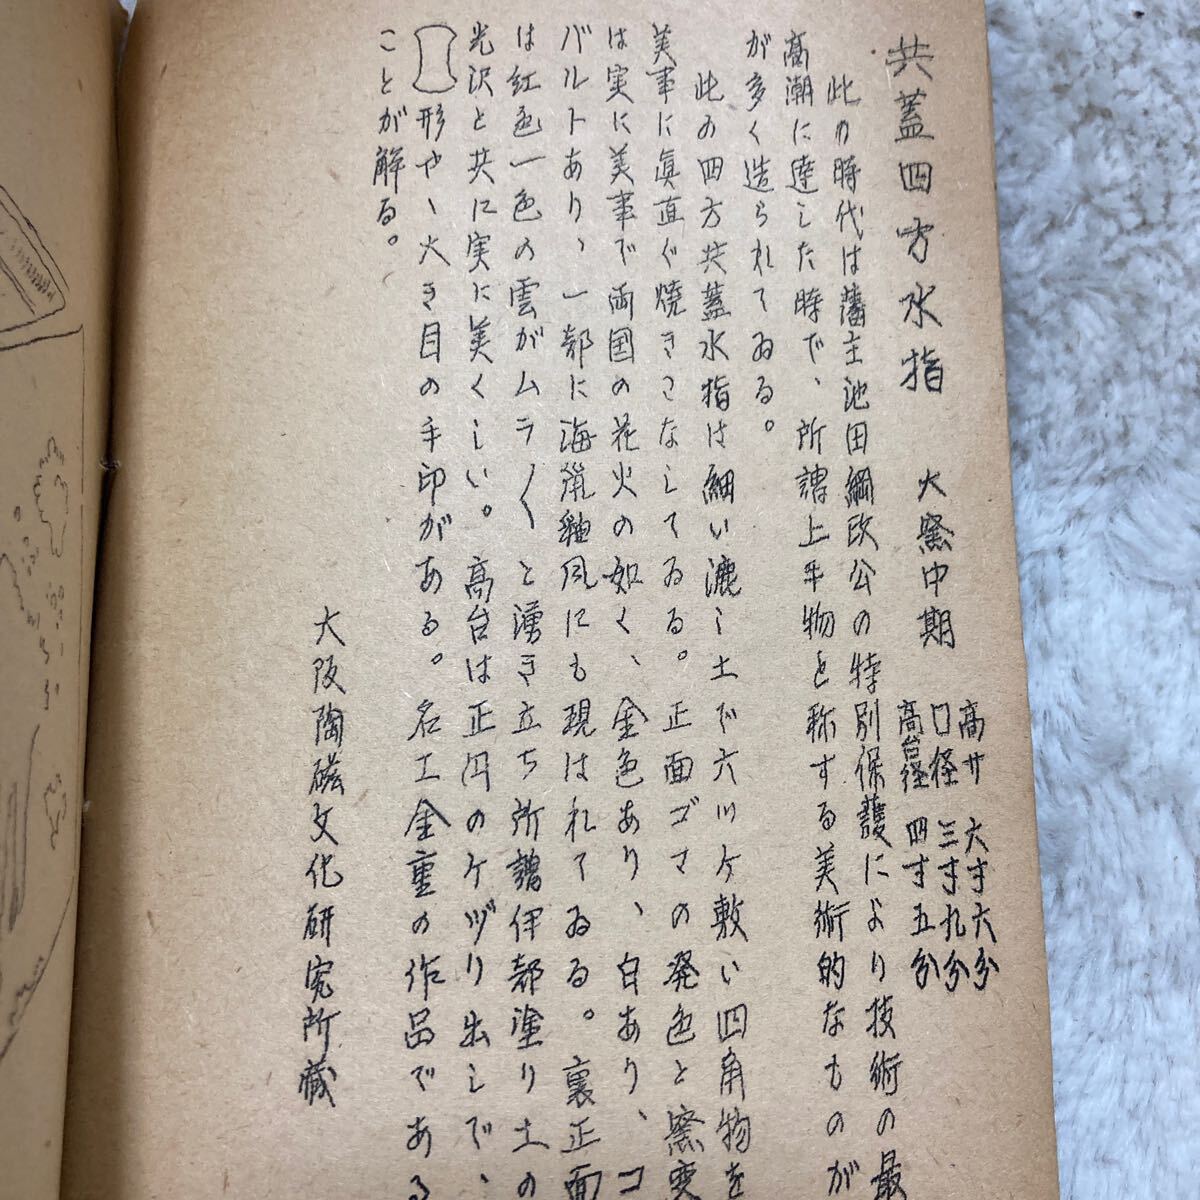 共蓋四方水指　大窯中期
高サ　六寸六分
口径　三寸九分
高台径　四寸五分
此の時代は藩主池田綱政公の特別保護により技術の最
高潮に達した時で、所謂上手物と称する美術的なものが
が多く造られてゐる。
此の四方共蓋水指は細い漉し土で六ツカ敷い四角物を
美事に眞直ぐ焼きこなしてゐる。正面ゴマの発色と窯変
は実に美事で両国の花火の如く、金色あり、白あり、コ
バルトあり、一部に海鼠釉風にも現はれてゐる。裏正面
は紅色一色の雲がムラ〱と湧き立ち所謂伊部塗り土の
光沢と共に実に美くしい。高台は正円のケヅり出しで、
形や、大き目の手印がある。名工金重の作品である
ことが解る。
大阪陶磁文化研究所蔵